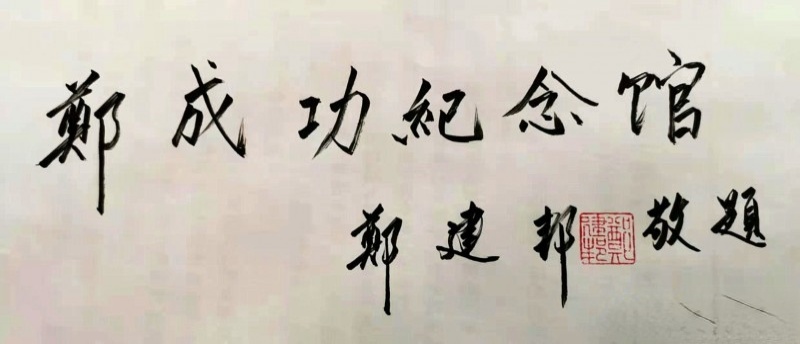 鄭成功紀念馆
鄭建邦敬題